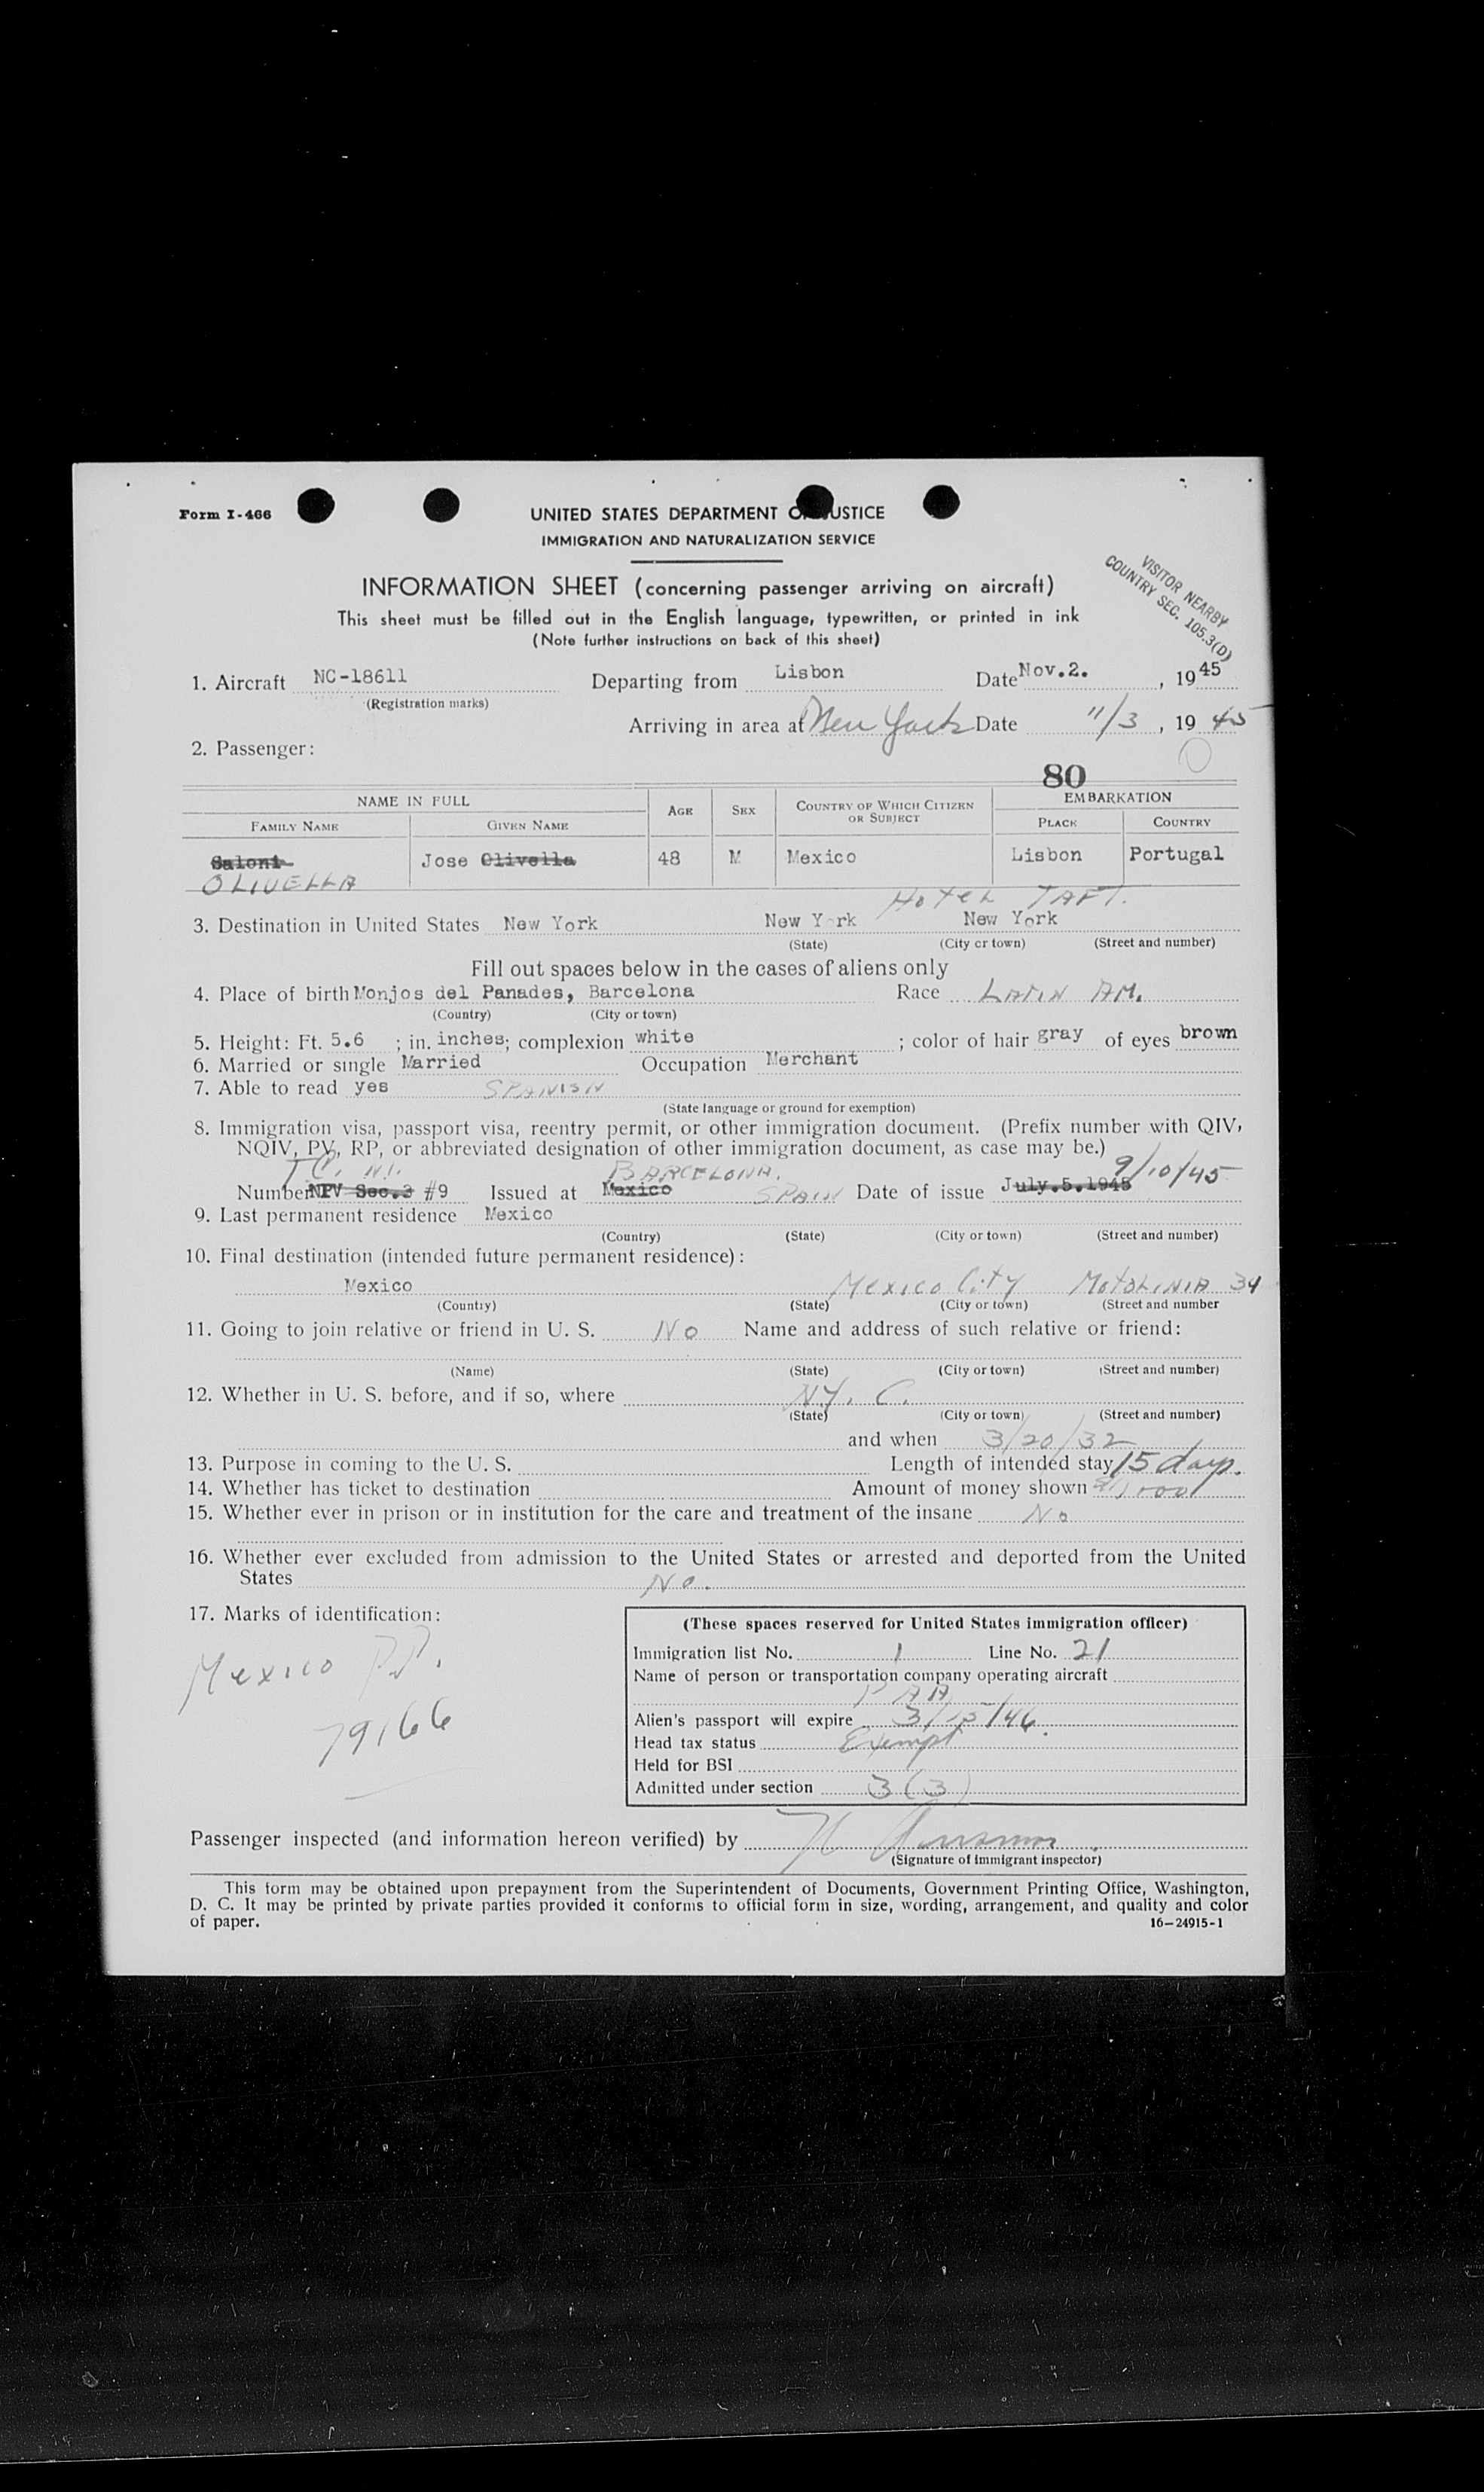 Form I-466
UNITED STATES DEPARTMENT OF JUSTICE
IMMIGRATION AND NATURALIZATION SERVICE
INFORMATION SHEET (concerning passenger arriving on aircraft)
VISITOR NEARBY
COUNTRY SEC. 105.3(D)
This sheet must be filled out in the English language, typewritten, or printed in ink
(Note further instructions on back of this sheet)
1. Aircraft NC-18611 Departing from Lisbon Date Nov.2. , 1945
(Registration marks)
Arriving in area at New York Date 11/3 , 19 45
2. Passenger:
80
NAME IN FULL AGE SEX COUNTRY OF WHICH CITIZEN OR SUBJECT EMBARKATION
FAMILY NAME GIVEN NAME PLACE COUNTRY
Saloni Jose Olivella 48 M Mexico Lisbon Portugal
OLIVELLA
HOTEL TAFT.
3. Destination in United States New York New York New York
(State) (City or town) (Street and number)
Fill out spaces below in the cases of aliens only
4. Place of birth Monjos del Panades, Barcelona Race LATIN AM.
(Country) (City or town)
5. Height: Ft. 5.6 ; in. inches; complexion white ; color of hair gray of eyes brown
6. Married or single Married Occupation Merchant
7. Able to read yes SPANISH
(State language or ground for exemption)
8. Immigration visa, passport visa, reentry permit, or other immigration document. (Prefix number with QIV,
NQIV, PV, RP, or abbreviated designation of other immigration document, as case may be.)
BARCELONA. 9/10/45
Number NPV Sec.3 #9 Issued at Mexico SPAIN Date of issue July.5.1945
9. Last permanent residence Mexico
(Country) (State) (City or town) (Street and number)
10. Final destination (intended future permanent residence):
Mexico Mexico City MOTOLINIA 34
(Country) (State) (City or town) (Street and number
11. Going to join relative or friend in U. S. No Name and address of such relative or friend:
(Name) (State) (City or town) (Street and number)
12. Whether in U. S. before, and if so, where N.Y. C.
(State) (City or town) (Street and number)
and when 3/20/32
13. Purpose in coming to the U. S. Length of intended stay 15 days.
14. Whether has ticket to destination Amount of money shown
15. Whether ever in prison or in institution for the care and treatment of the insane No
16. Whether ever excluded from admission to the United States or arrested and deported from the United
States No.
17. Marks of identification:
Mexico P.P.
79166
(These spaces reserved for United States immigration officer)
Immigration list No. 1 Line No. 21
Name of person or transportation company operating aircraft
PAA
Alien's passport will expire 3/15/46.
Head tax status Exempt
Held for BSI
Admitted under section 3(3)
Passenger inspected (and information hereon verified) by
(Signature of immigrant inspector)
This form may be obtained upon prepayment from the Superintendent of Documents, Government Printing Office, Washington,
D. C. It may be printed by private parties provided it conforms to official form in size, wording, arrangement, and quality and color
of paper.
16—24915-1